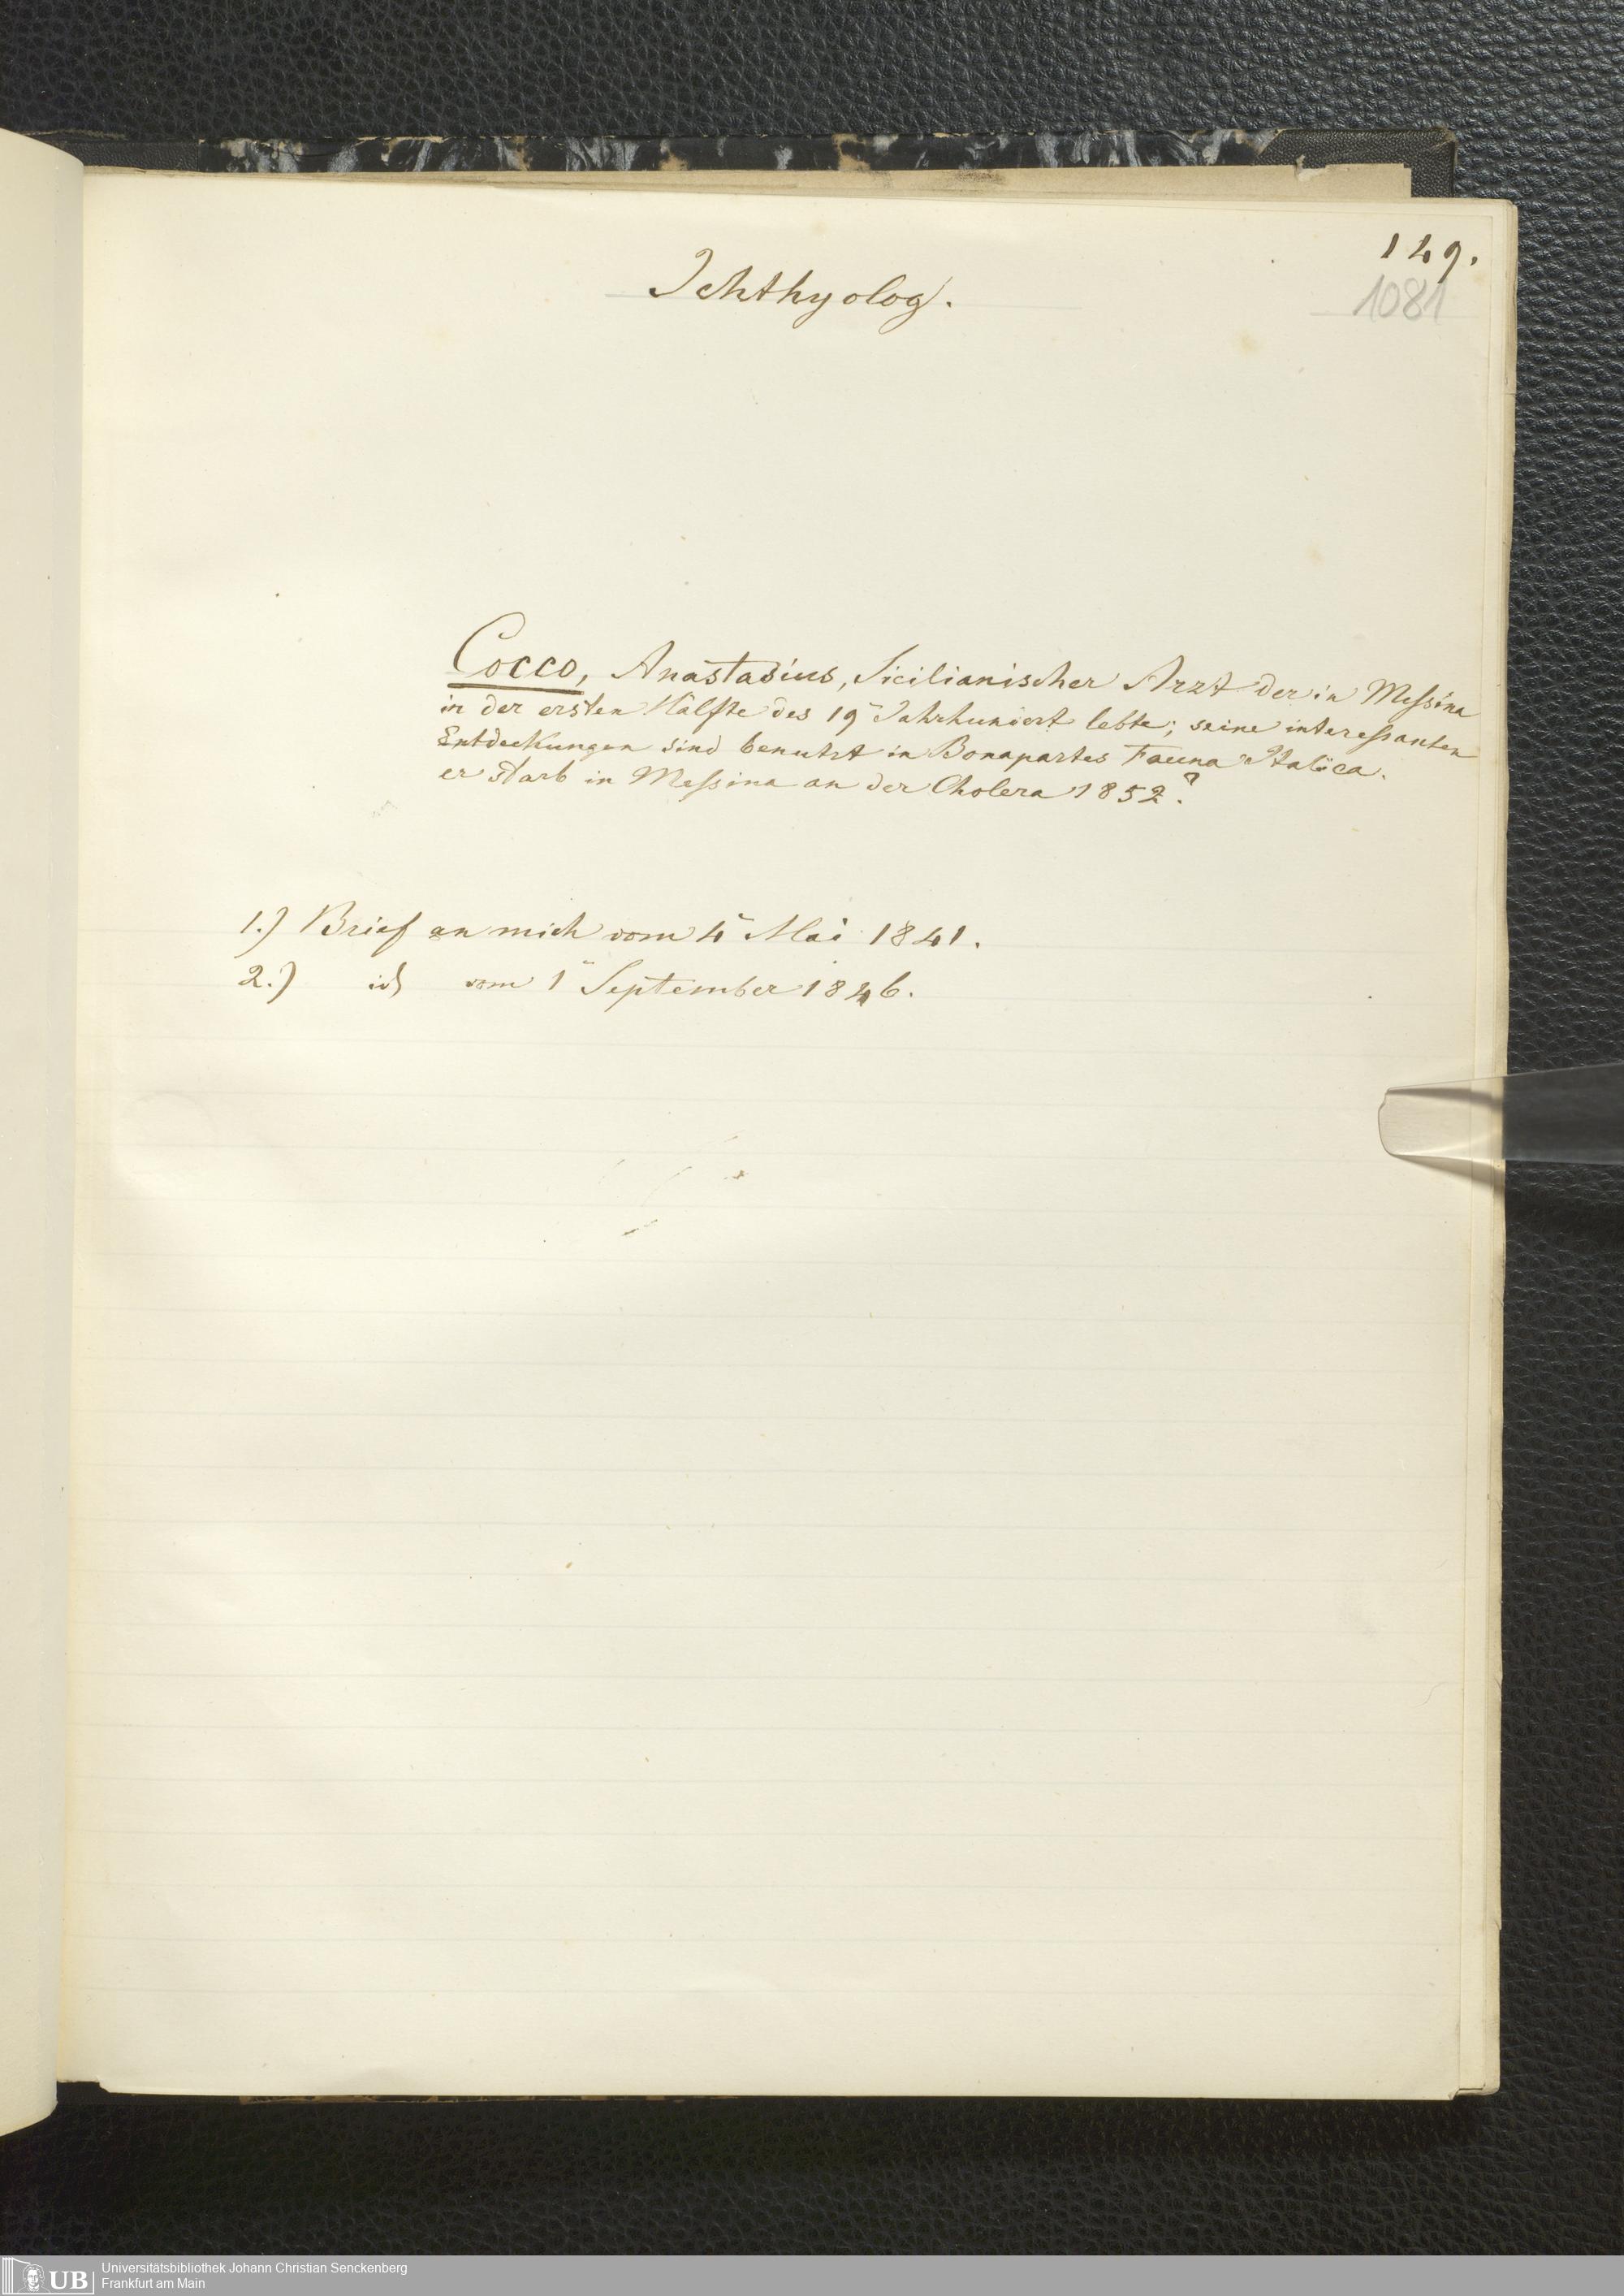 149.
1081
Ichthyolog.
Cocco, Anastasius, Sicilianischer Arzt der in Meſsina
in der ersten Hälfte des 19n Jahrhundert lebte; seine intereſsanten
Entdeckungen sind benutzt in Bonapartes Fauna Italica.
er starb in Meſsina an der Cholera 1852.?
1.) Brief an mich vom 4n Mai 1841.
2.) id vom 1n September 1846.
UB
Universitätsbibliothek Johann Christian Senckenberg
Frankfurt am Main